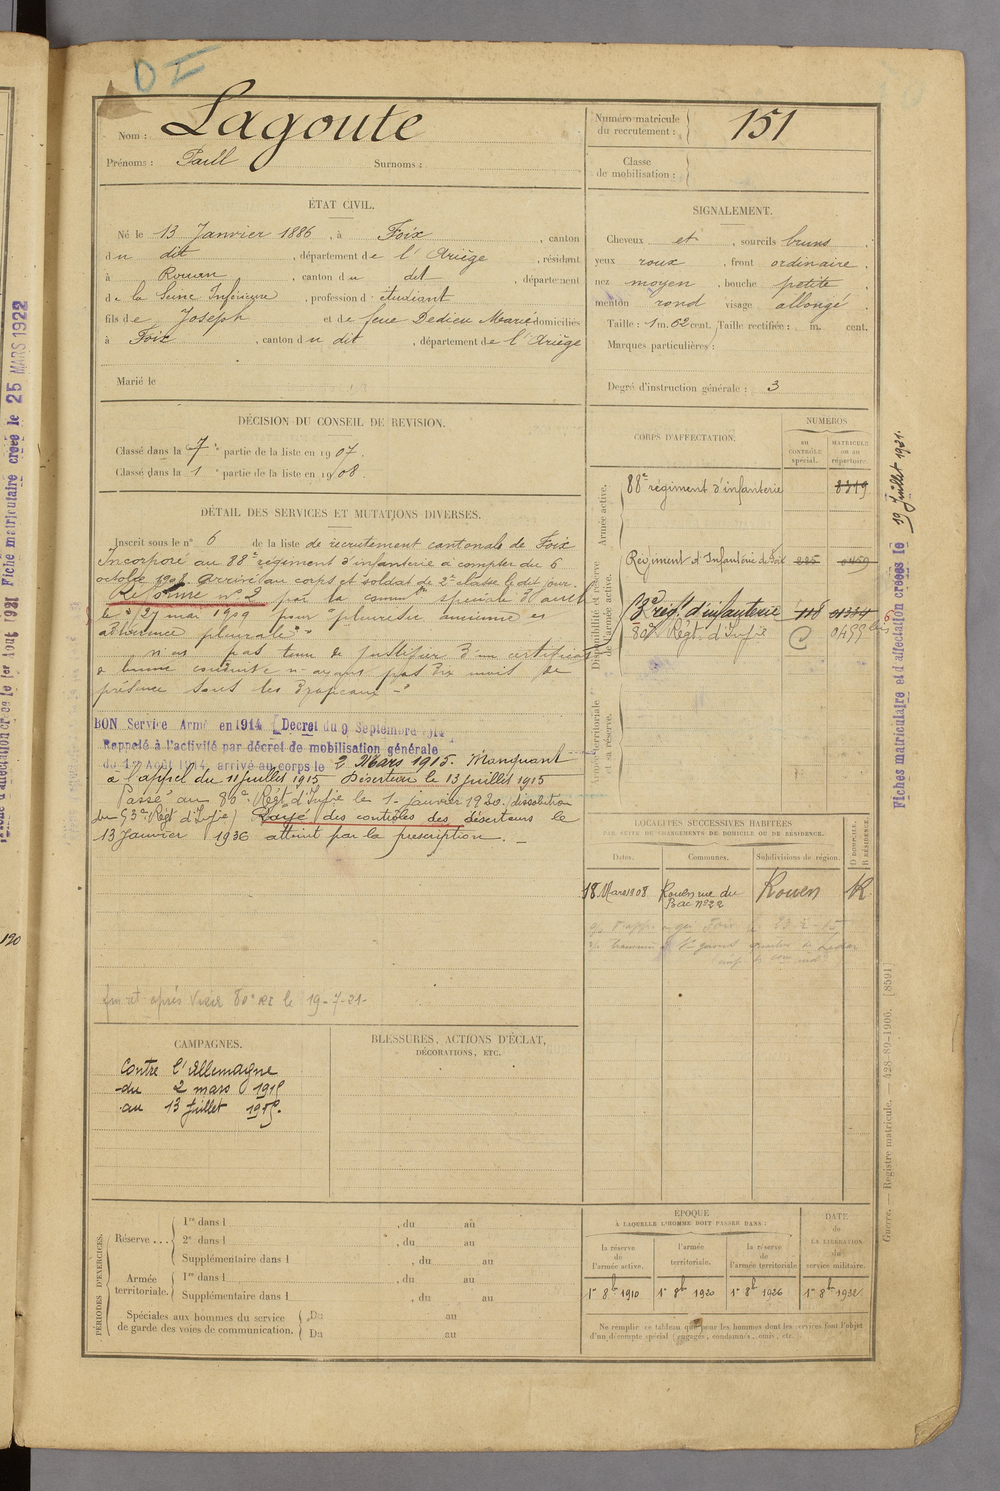 Nom : Lagoute
Prénoms : Paul Surnoms :
Numéro matricule du recrutement : 151
Classe de mobilisation :
ÉTAT CIVIL.
Né le 13 Janvier 1886, à Foix, canton
du dit, département de l'Ariège, résidant
à Rouen, canton du dit, département
de la Seine Inférieure, profession d'étudiant
fils de Joseph et de feue Dedieu Marie domiciliés
à Foix, canton du dit, département de l'Ariège
Marié le
SIGNALEMENT.
Cheveux et, sourcils bruns
yeux roux, front ordinaire
nez moyen, bouche petite
menton rond visage allongé
Taille : 1 m. 62 cent. Taille rectifiée : m. cent.
Marques particulières :
Degré d'instruction générale : 3
DÉCISION DU CONSEIL DE REVISION.
Classé dans la 7e partie de la liste en 1907
Classé dans la 1e partie de la liste en 1908
CORPS D'AFFECTATION.
NUMÉROS
au contrôle spécial.
matricule ou au répertoire.
Armée active.
88e régiment d'infanterie 8319
Disponibilité et réserve de l'armée active.
Régiment d'Infanterie de Foix
3e rég. d'infanterie
80e Régt d'Infie C 0499 bis
Armée territoriale et sa réserve.
DÉTAIL DES SERVICES ET MUTATIONS DIVERSES.
Inscrit sous le n° 6 de la liste de recrutement cantonale de Foix
Incorporé au 88e régiment d'infanterie à compter du 6
octobre 1908. Arrivé au corps et soldat de 2e classe le dit jour.
Réformé n° 2 par la comm on spéciale
le 27 mai 1909 pour "pleurésie ancienne et
adhérence pleurale"
n'est pas tenu de justifier d'un certificat
de bonne conduite n'ayant pas dix mois de
présence sous les drapeaux -
BON Service Armé en 1914 [Decret du 9 Septembre 1914
Rappelé à l'activité par décret de mobilisation générale
du 1er Août 1914, arrivé au corps le 2 Mars 1915. Manquant
à l'appel du 11 juillet 1915 Déserteur le 13 juillet 1915
Passé au 80e Régt d'Infie le 1 janvier 1920. (dissolution
du 93e Régt d'Infie) Rayé des contrôles des déserteurs le
13 Janvier 1936 atteint par la prescription. -
80e RI le 19-7-21-
LOCALITÉS SUCCESSIVES HABITÉES
PAR SUITE DE CHANGEMENTS DE DOMICILE OU DE RÉSIDENCE.
Dates. Communes. Subdivisions de région. D domicile. R résidence.
18 Mars 1908 Rouen rue du Bac n° 22 Rouen R
CAMPAGNES.
Contre l'Allemagne
du 2 mars 1915
au 13 Juillet 1915.
BLESSURES, ACTIONS D'ÉCLAT,
DÉCORATIONS, ETC.
PÉRIODES D'EXERCICES.
Réserve ...
1re dans l , du au
2e dans l , du au
Supplémentaire dans l , du au
Armée territoriale.
1re dans l , du au
Supplémentaire dans l , du au
Spéciales aux hommes du service de garde des voies de communication.
Du au
Du au
ÉPOQUE
À LAQUELLE L'HOMME DOIT PASSER DANS :
la réserve de l'armée active. l'armée territoriale. la réserve de l'armée territoriale
DATE de LA LIBÉRATION du service militaire.
1er 8bre 1910 1er 8bre 1920 1er 8bre 1926 1er 8bre 1932
Ne remplir ce tableau que pour les hommes dont les services font l'objet
d'un décompte spécial (engagés, condamnés, omis, etc.)
Fiches matriculaire et d'affectation créées le 19 Juillet 1921.
Guerre. — Registre matricule. — 428-89-1906. [8591]
Fiche matriculaire créée le 25 MARS 1922
d'affectation créée le 1er Août 1921
120